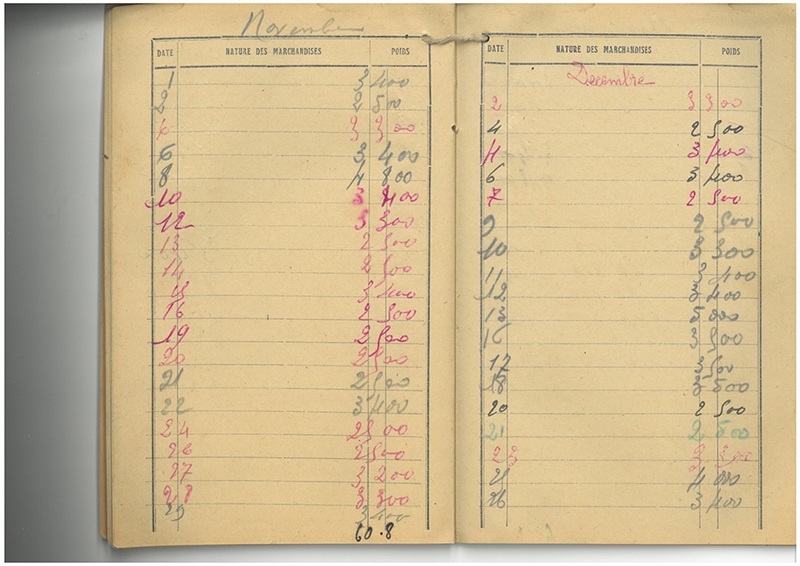 Novembre
DATE NATURE DES MARCHANDISES POIDS
1 3 400
2 2 500
6 3 300
6 3 400
8 4 800
10 3 400
12 3 300
13 2 500
14 2 500
15 3 400
16 2 500
19 2 500
20 2 500
21 2 500
22 3 400
24 2 500
26 2 500
27 3 200
28 3 300
29 3 400
60.8
DATE NATURE DES MARCHANDISES POIDS
Decembre
2 3 300
4 2 500
4 3 400
6 3 400
7 2 500
9 2 500
10 3 300
11 3 400
12 3 400
13 5 000
16 3 500
17 3 500
18 3 500
20 2 500
21 2 500
23 3 300
4 000
26 3 400